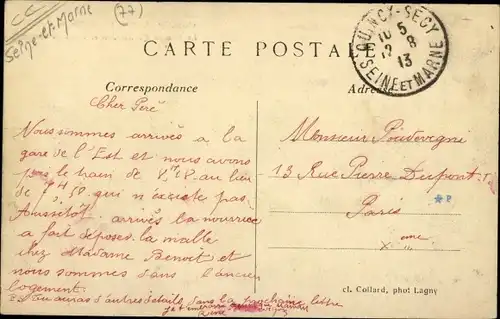 Seine-et-Marne
(77)
CARTE POSTALE
QUINCY-SEGY
SEINE ET MARNE
13
Correspondance
Cher Père
Nous sommes arrivés a la
gare de l'Est et nous avons
pris le train de au lieu
de qui n'existe pas.
Aussitôt arrivés la nourrice
a fait déposer la malle
chez Madame Benoit et
nous sommes dans l'ancien
logement.
Tu auras d'autres détails dans la prochaine lettre
Monsieur
13 Rue Pierre Dupont
Paris
X ème
cl. Collard, phot Lagny